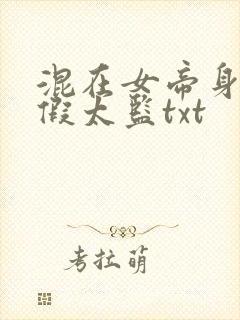 混在女帝身
假太监txt
考拉萌